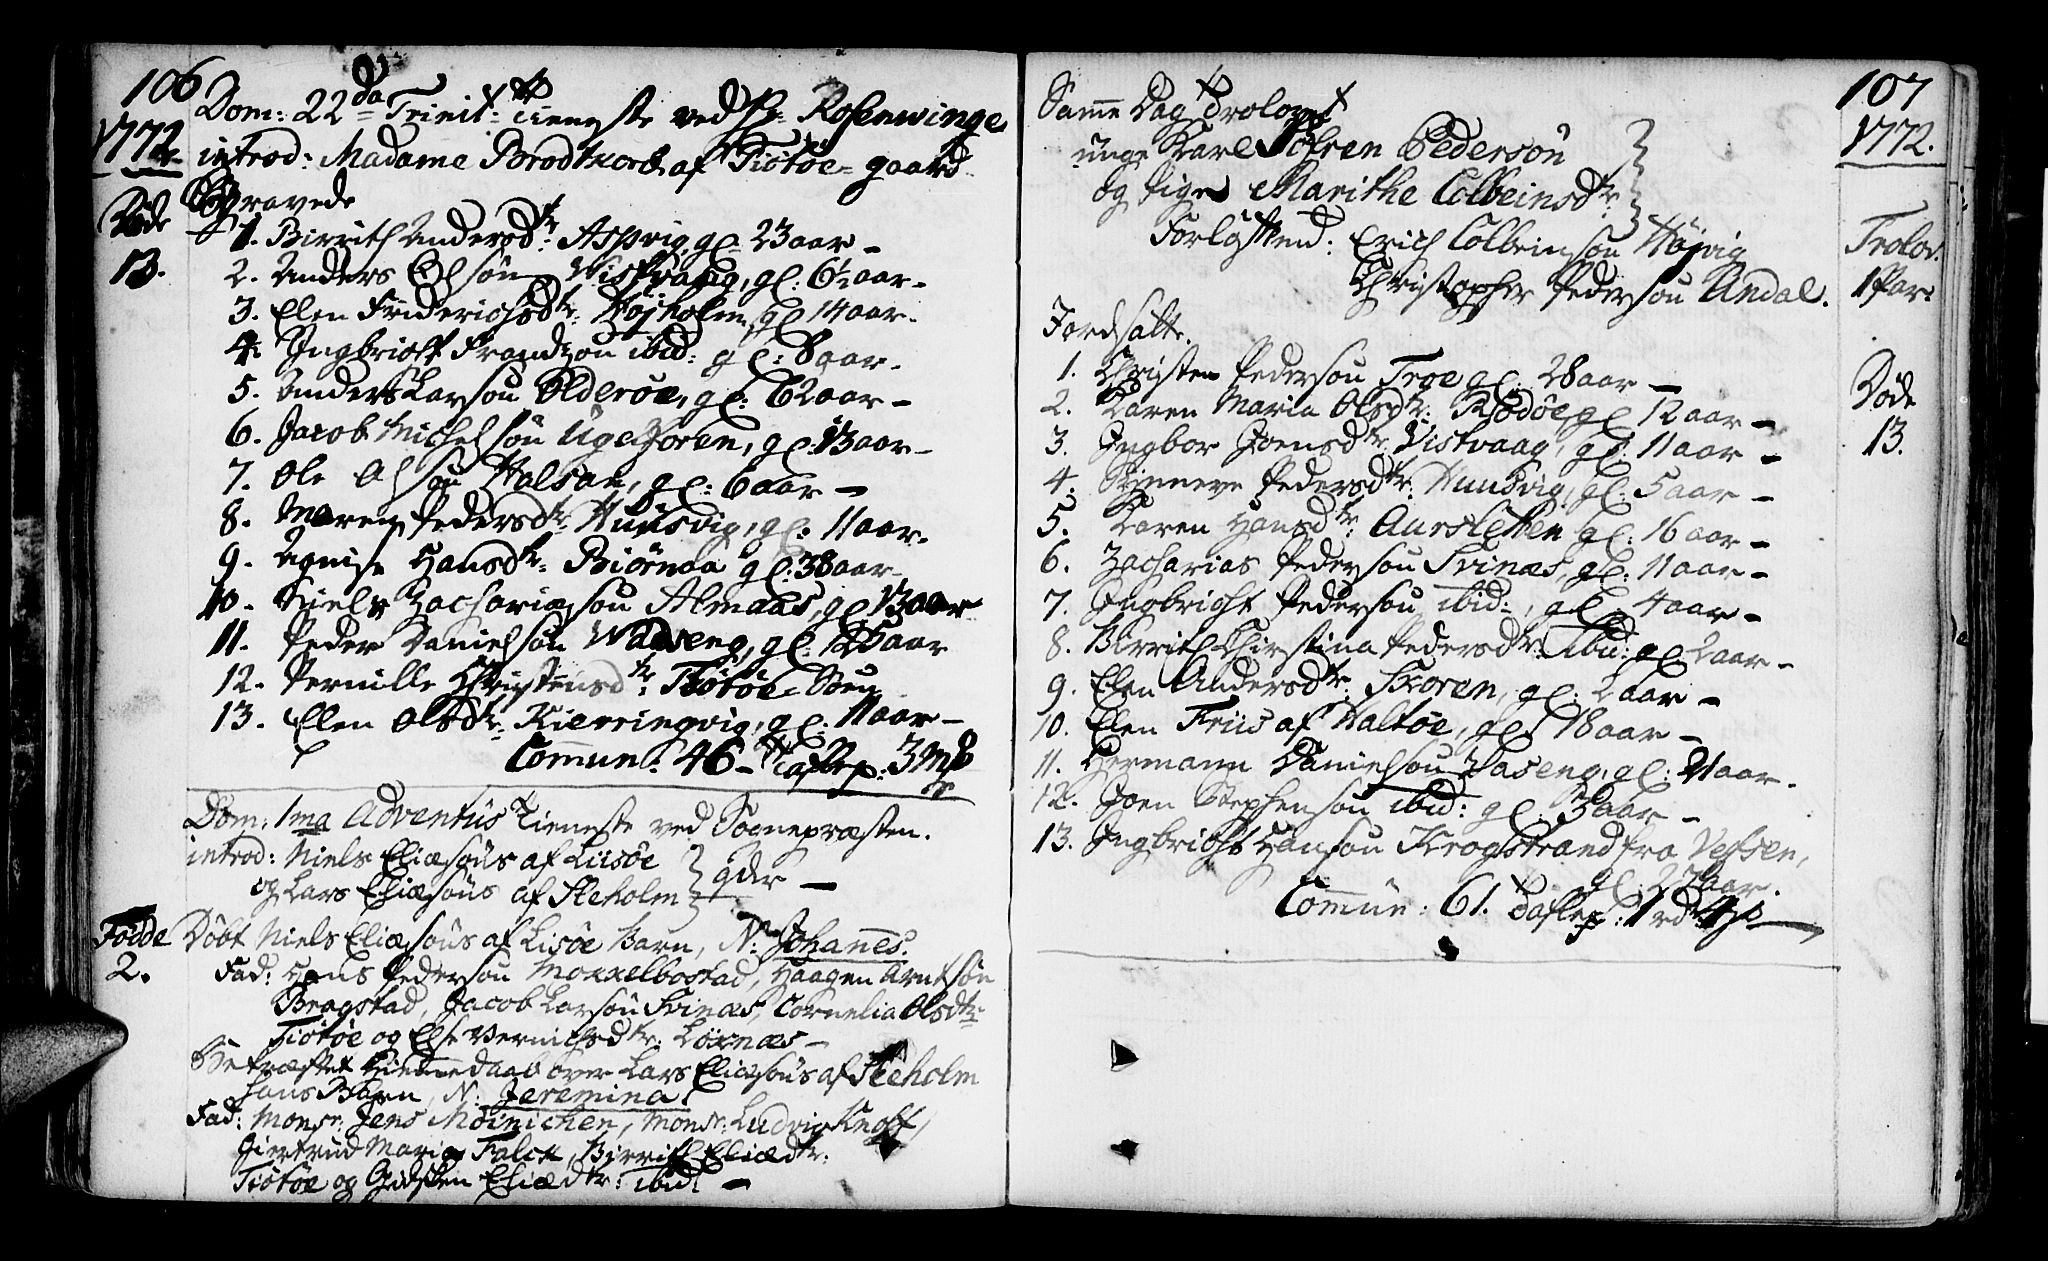 106
1772.
Dom: 22da Trinit: tieneste ved Hr: Rosenwinge
introd: Madame Brodtkorb af Tiøtøe-gaard
Begravede
Døde
13.
1. Birrith Andersdtr: Aspvig, gl: 23 aar –
2. Anders Olsøn Vistvaag, gl: 6½ aar –
3. Elen Friderichsdtr: Højholm, gl 14 aar.
4. Ingbricht Frandzøn ibid: gl: 8 aar.
5. Anders Larsøn Olderøe, gl: 62 aar –
6. Jacob Michelsøn, gl: 13 aar –
7. Ole Olsøn Halsan, gl: 6 aar –
8. Maren Pedersdtr: Huusvig, gl: 11 aar.
9. Agnise Hansdtr: Biørnaa gl: 38 aar
10. Niels Zachariæsøn Almaas, gl 13 aar
11. Peder Danielsøn Wadseng, gl: aar
12. Pernille Christensdtr: Tiøtøe-
13. Elen Olsdtr: Kierringvig, gl: 11 aar –
Commun: 46 – Tafl: 3 m
Dom: 1ma Adventus Tieneste ved Sognepræsten.
introd: Niels Eliæsøns af Liisøe
og Lars Eliæsøns af Steholm } qder –
Fødde
2.
Døbt Niels Eliæsøns af Lisøe Barn, N: Johannes.
Fad: Hans Pedersøn Moxxelbostad, Haagen Arntsøn
Bragstad, Jacob Larsøn Svinæs, Cornelia Olsdtr:
Tiøtøe og Else Vernichsdtr: Løxnæs –
Betræftet Hiemmedaab over Lars Eliæsøns af Steholm
hans Barn, N: Jeremina.
Fad: Monsr: Jens Møinichen, Monsr: Ludvig Knoff,
Giertrud Maria Falch, Birrith Eliædtr:
Tiøtøe og Gidsken Eliædtr: ibid –
107
1772.
Samme Dag trolovet
unge Karl Søfren Pedersøn
og Pige Marithe Colbeinsdtr:
Forløftend: Erich Colbeinsøn Højvig
Christopher Pedersøn Andal.
Trolov.
1 Par.
Jordsatte.
Døde
13.
1. Christen Pedersøn Troe gl: 28 aar –
2. Karen Maria Olsdtr: Rødøe gl 12 aar –
3. Ingbor Joensdtr: Vistvaag, gl: 11 aar –
4. Sinneve Pedersdtr: Huusvig, gl: 5 aar –
5. Karen Hansdtr: Aursletten gl: 16 aar –
6. Zacharias Pedersøn Svinæs, gl: 11 aar –
7. Ingbricht Pedersøn ibid:, gl: 4 aar –
8. Birrith Christina Pedersdtr: ibid: gl 2 aar –
9. Elen Andersdtr: Skoren, gl: 2 aar –
10. Elen Friis af Haltøe, gl 18 aar –
11. Hermann Danielsøn Vaseng, gl: 21 aar.
12. Joen Stephensøn ibid: gl: 3 aar –
13. Ingbricht Hansøn Krogstrand fra Vefsen,
gl: 27 aar.
Commun: 61. Tafl: 1 rd 4 s